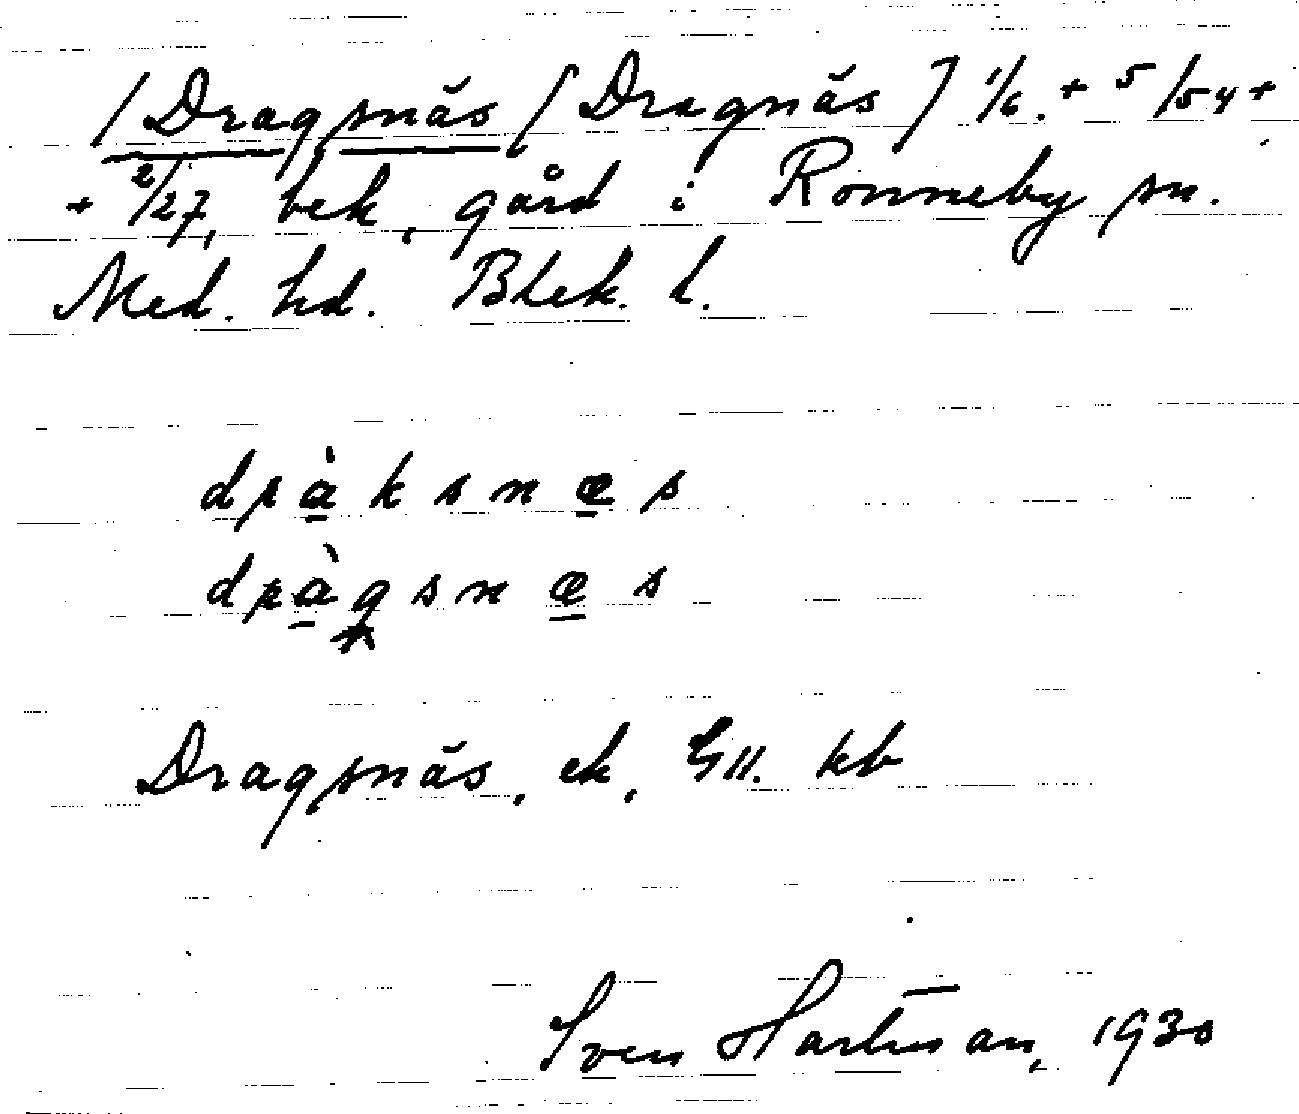 /Dragsnäs [Dragnäs] 1/6. + 5/54 +
+ 2/27, bek, gård i Ronneby sn.
Med. hd. Blek. l.
dràksnæs
dràgsnæs
Dragsnäs, ek, GII. kb
Sven Hartman, 1930